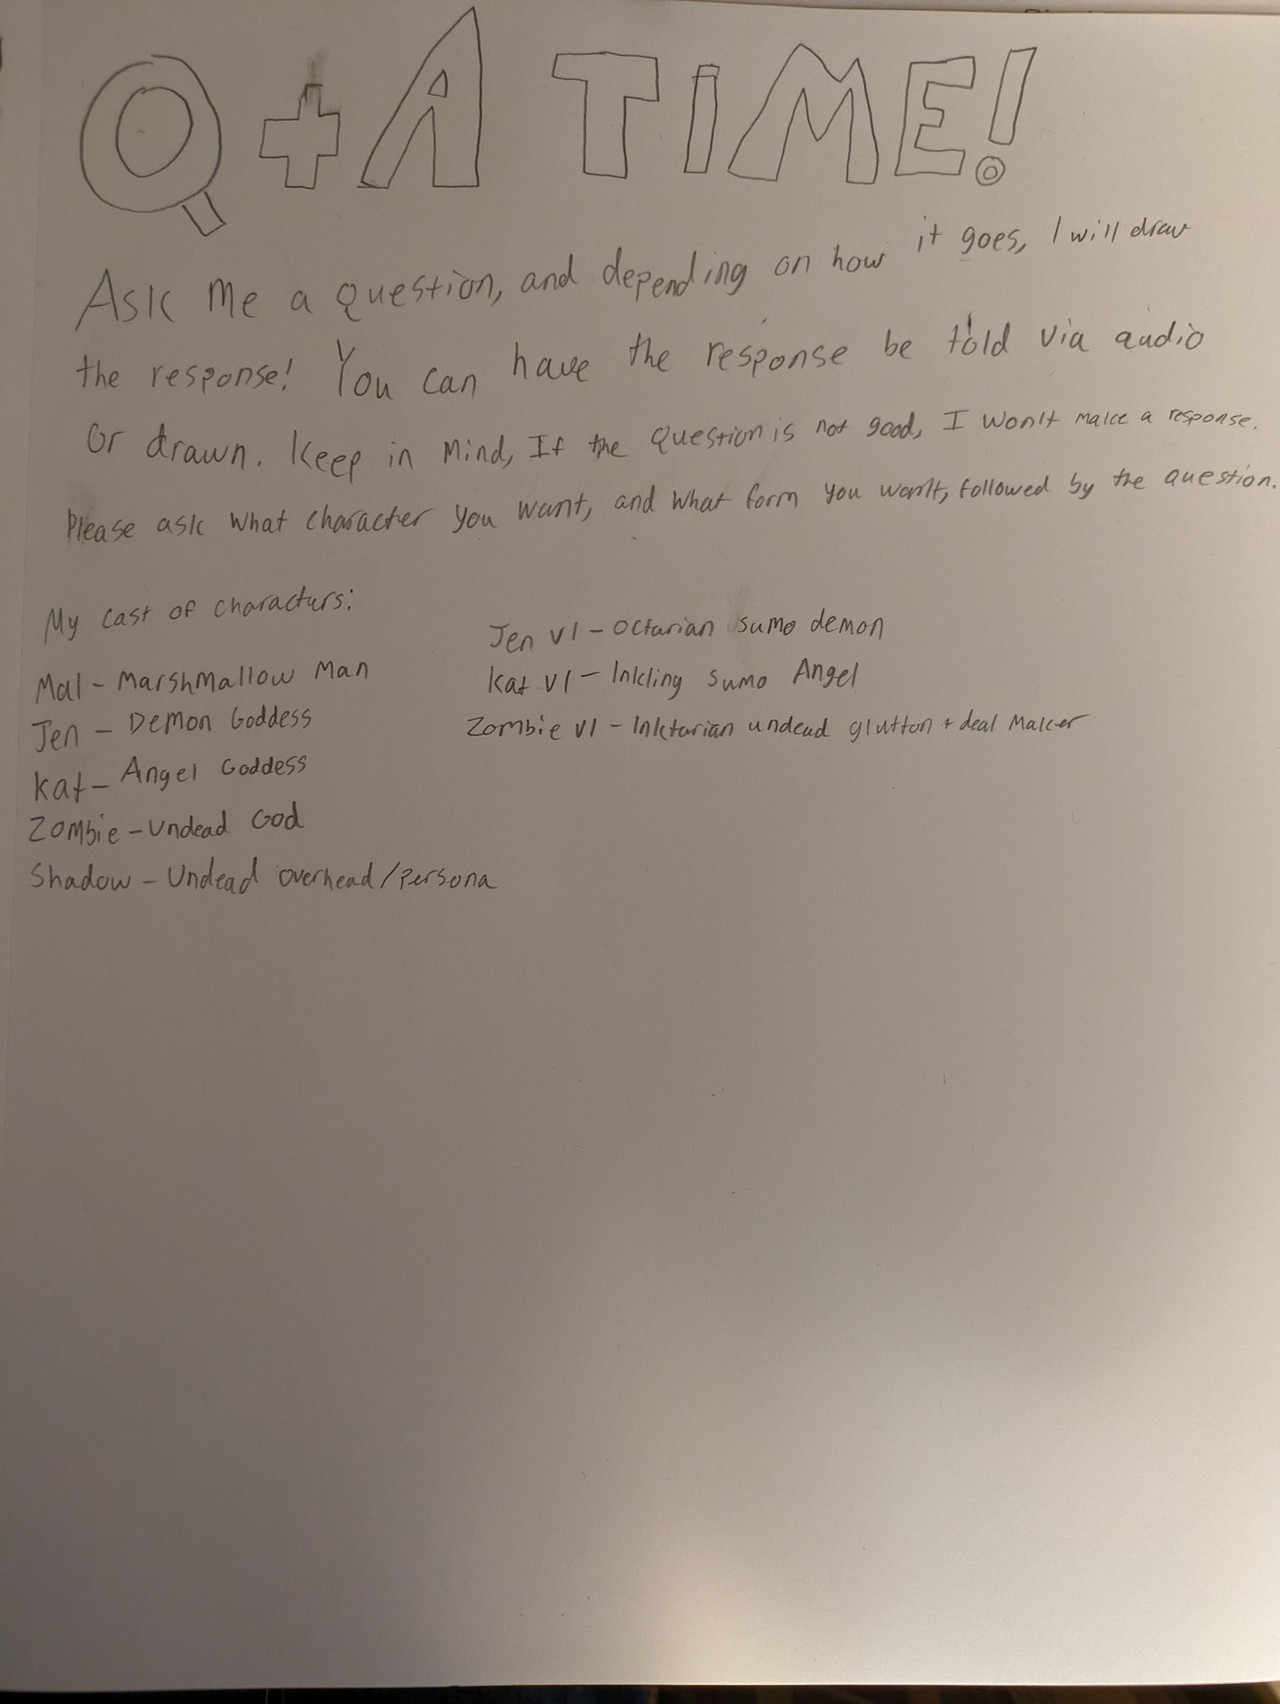 Q + A TIME!
Ask me a question, and depending on how it goes, I will draw
the response! You can have the response be told via audio
or drawn. Keep in mind, If the question is not good, I won't make a response.
Please ask what character you want, and what form you want, followed by the question.
My cast of characturs:
Mal - Marshmallow Man
Jen - Demon Goddess
Kat - Angel Goddess
Zombie - Undead God
Shadow - Undead overhead/Persona
Jen V1 - Octarian sumo demon
Kat V1 - Inkling sumo Angel
Zombie V1 - Inktarian undead glutton + deal Maker